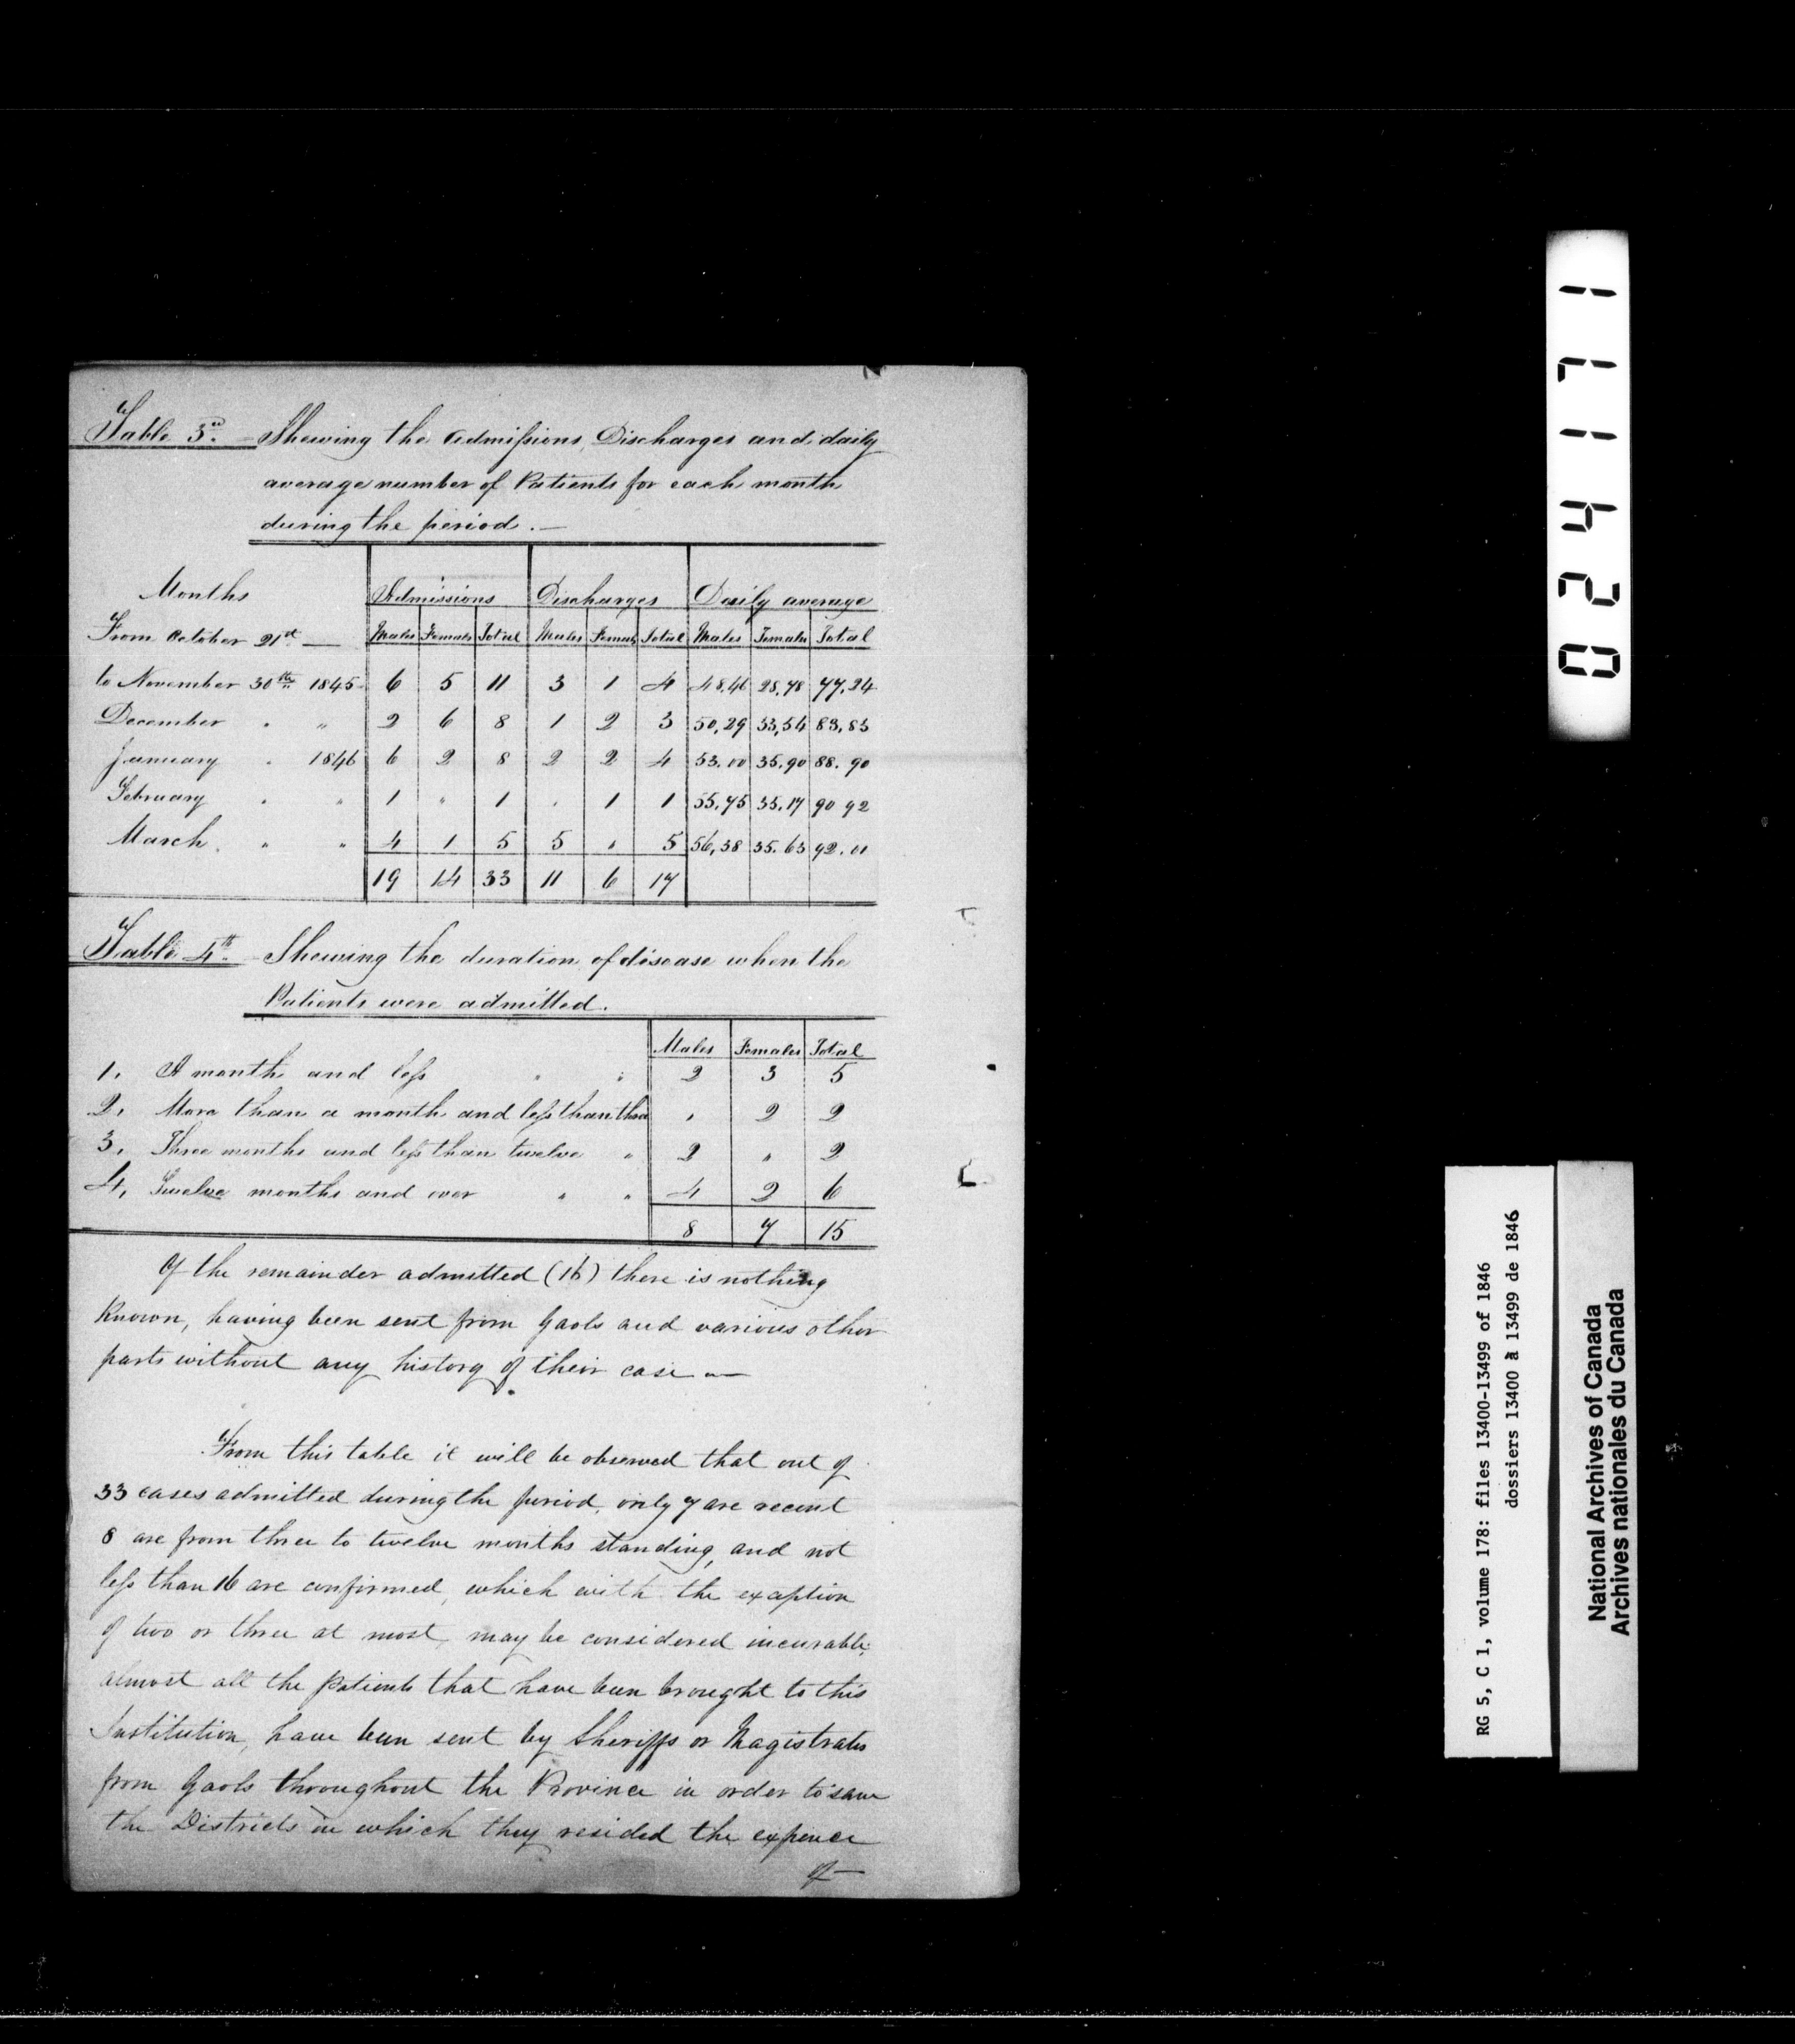 Table 3rd. Shewing the admissions, Discharges and daily
average number of Patients for each month
during the period. —
Months Admissions Discharges Daily average
From October 21st — Males Females Total Males Females Total Males Females Total
to November 30th 1845 6 5 11 3 1 4 48,46 28,78 77,24
December " " 2 6 8 1 2 3 50,29 33,54 83,83
January " 1846 6 2 8 2 2 4 53.00 35.90 88.90
February " " 1 " 1 " 1 1 55,75 35.17 90 92
March " " 4 1 5 5 " 5 56,38 35.63 92.01
19 14 33 11 6 17
Table 4th. Shewing the duration of disease when the
Patients were admitted.
Males Females Total
1. A month and less " " 2 3 5
2. More than a month and less than three " 2 2
3. Three months and less than twelve " 2 " 2
4. Twelve months and over " " 4 2 6
8 7 15
Of the remainder admitted (16) there is nothing
Known, having been sent from Gaols and various other
parts without any history of their case —
From this table it will be observed that out of
33 cases admitted during the period, only 7 are recent
8 are from three to twelve months standing, and not
less than 16 are confirmed, which with the exception
of two or three at most, may be considered incurable;
almost all the Patients that have been brought to this
Institution, have been sent by Sheriffs or Magistrates
from Gaols throughout the Province in order to save
the Districts in which they resided the expence
of —
024171
RG 5, C 1, volume 178: files 13400-13499 of 1846
dossiers 13400 à 13499 de 1846
National Archives of Canada
Archives nationales du Canada